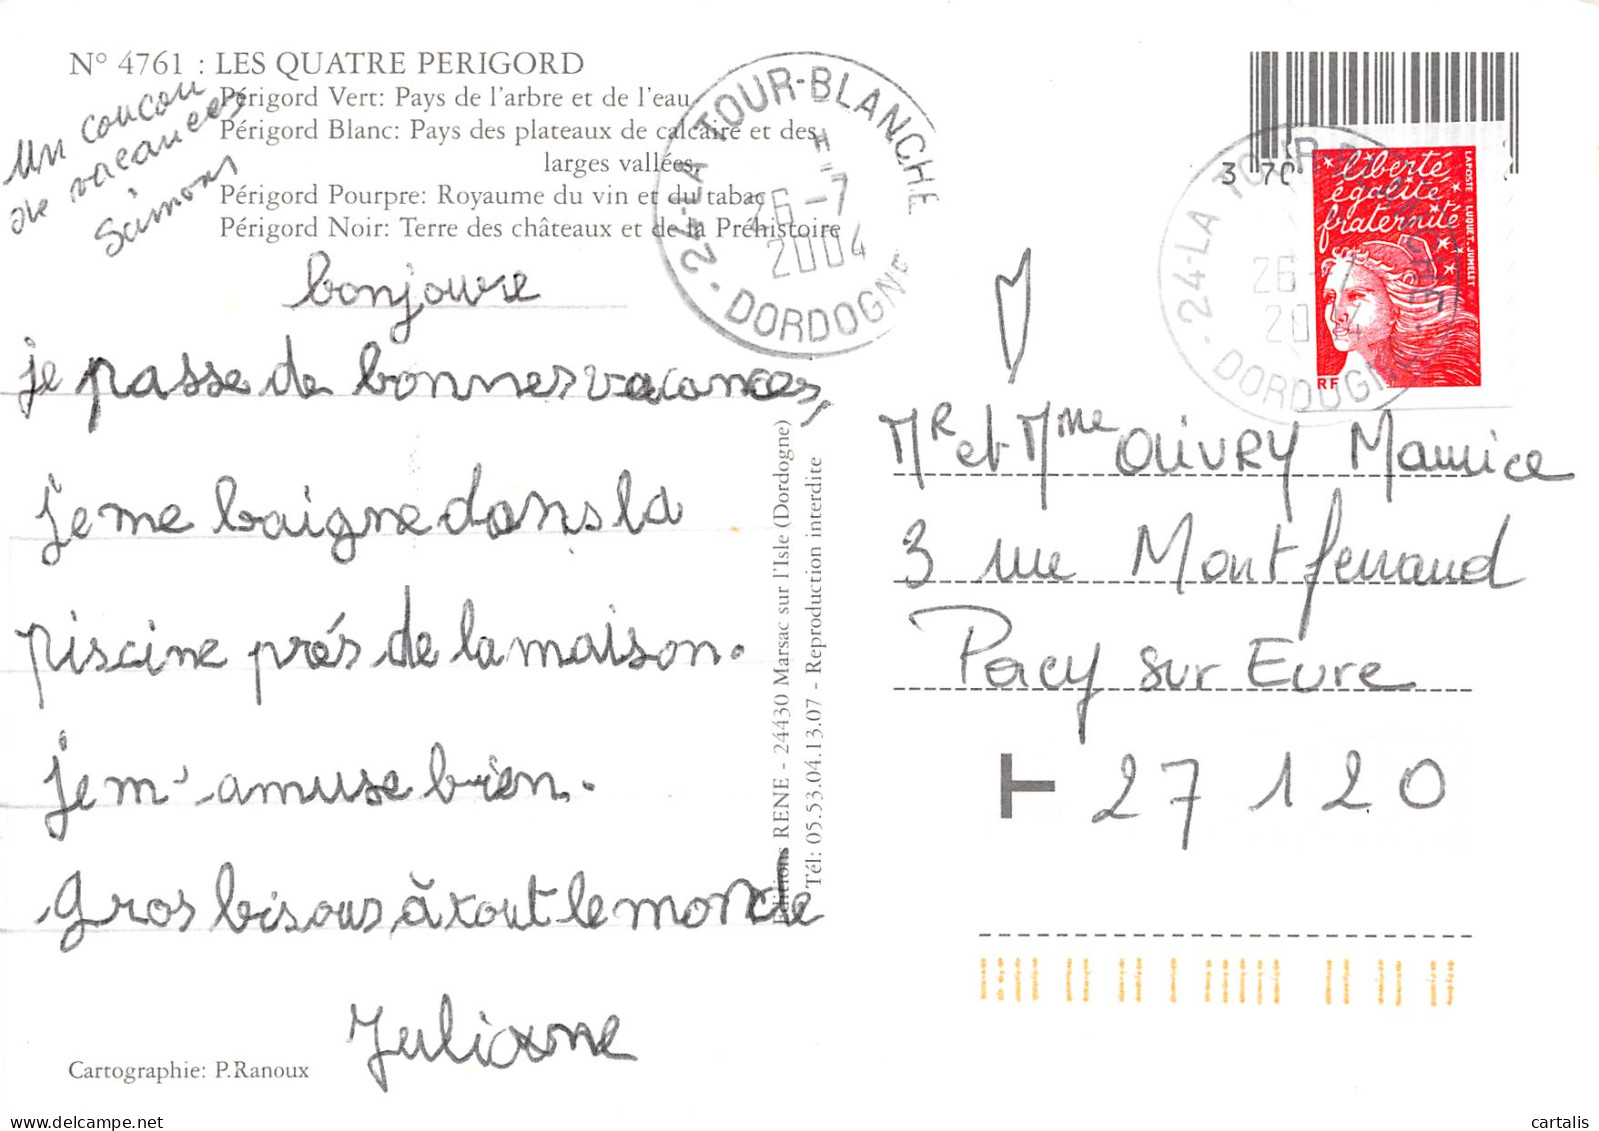 N° 4761 : LES QUATRE PERIGORD
Périgord Vert: Pays de l'arbre et de l'eau
Périgord Blanc: Pays des plateaux de calcaire et des
larges vallées,
Périgord Pourpre: Royaume du vin et du tabac
Périgord Noir: Terre des châteaux et de la Préhistoire
un coucou
de vacances
Simons
24-LA TOUR-BLANCHE
26-7
2004
DORDOGNE
bonjoure
je passe de bonnes vacances,
je me baigne dans la
piscine prés de la maison.
je m'amuse bien.
gros bisous à tout le monde
Julianne
Cartographie: P.Ranoux
Editions RENE - 24430 Marsac sur l'Isle (Dordogne)
Tél: 05.53.04.13.07 - Reproduction interdite
3 70
liberté
égalité
fraternité
LA POSTE LUQUET.JUMELET
RF
24-LA TOUR-BLANCHE
26-7
2004
DORDOGNE
Mr et Mme OLIVRY Maurice
3 rue Montferrand
Pacy sur Eure
T 27120
cartalis